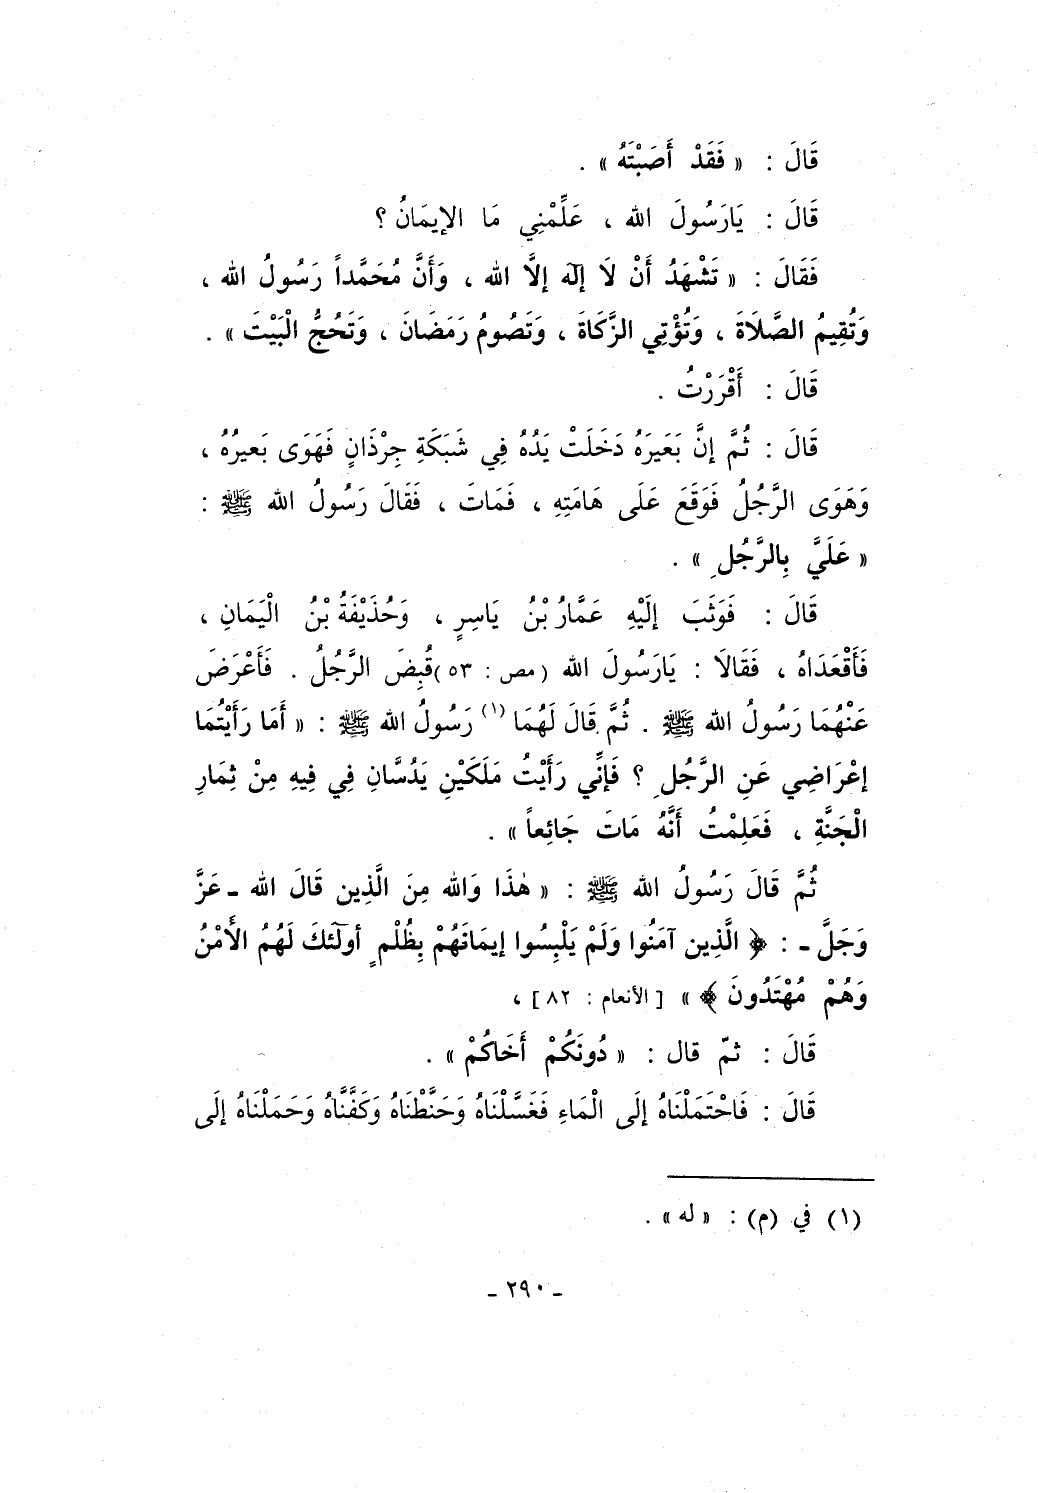 قَالَ : « فَقَدْ أَصَبْتَهُ » .
قَالَ : يَارَسُولَ الله ، عَلِّمْنِي مَا الإيمَانُ ؟
فَقَالَ : « تَشْهَدُ أَنْ لَا إلَهَ إلَّا الله ، وَأَنَّ مُحَمَّداً رَسُولُ الله ،
وَتُقِيمُ الصَّلَاةَ ، وَتُؤْتِي الزَّكَاةَ ، وَتَصُومُ رَمَضَانَ ، وَتَحُجُّ الْبَيْتَ » .
قَالَ : أَقْرَرْتُ .
قَالَ : ثُمَّ إنَّ بَعَيرَهُ دَخَلَتْ يَدُهُ فِي شَبَكَةِ جِرْذَانٍ فَهَوَى بَعيرُهُ ،
وَهَوَى الرَّجُلُ فَوَقَعَ عَلَى هَامَتِهِ ، فَمَاتَ ، فَقَالَ رَسُولُ الله ﷺ :
« عَلَيَّ بِالرَّجُلِ » .
قَالَ : فَوَثَبَ إلَيْهِ عَمَّارُ بْنُ يَاسِرٍ ، وَحُذَيْفَةُ بْنُ الْيَمَانِ ،
فَأَقْعَدَاهُ ، فَقَالَا : يَارَسُولَ الله (مص : ٥٣) قُبِضَ الرَّجُلُ . فَأَعْرَضَ
عَنْهُمَا رَسُولُ الله ﷺ . ثُمَّ قَالَ لَهُمَا (١) رَسُولُ الله ﷺ : « أَمَا رَأَيْتُمَا
إعْرَاضِي عَنِ الرَّجُلِ ؟ فَإنِّي رَأَيْتُ مَلَكَيْنِ يَدُسَّانِ فِي فِيهِ مِنْ ثِمَارِ
الْجَنَّةِ ، فَعَلِمْتُ أَنَّهُ مَاتَ جَائِعاً » .
ثُمَّ قَالَ رَسُولُ الله ﷺ : « هٰذَا وَالله مِنَ الَّذِين قَالَ الله ـ عَزَّ
وَجَلَّ ـ : ﴿ الَّذِين آمَنُوا وَلَمْ يَلْبِسُوا إيمَانَهُمْ بِظُلْمٍ أولَئكَ لَهُمُ الأَمْنُ
وَهُمْ مُهْتَدُونَ ﴾ » [ الأنعام : ٨٢ ] ،
قَالَ : ثمّ قال : « دُونَكُمْ أَخَاكُمْ » .
قَالَ : فَاحْتَمَلْنَاهُ إلَى الْمَاءِ فَغَسَّلْنَاهُ وَحَنَّطْنَاهُ وَكَفَّنَّاهُ وَحَمَلْنَاهُ إلَى
(١) في (م) : « له » .
ـ ٢٩٠ ـ